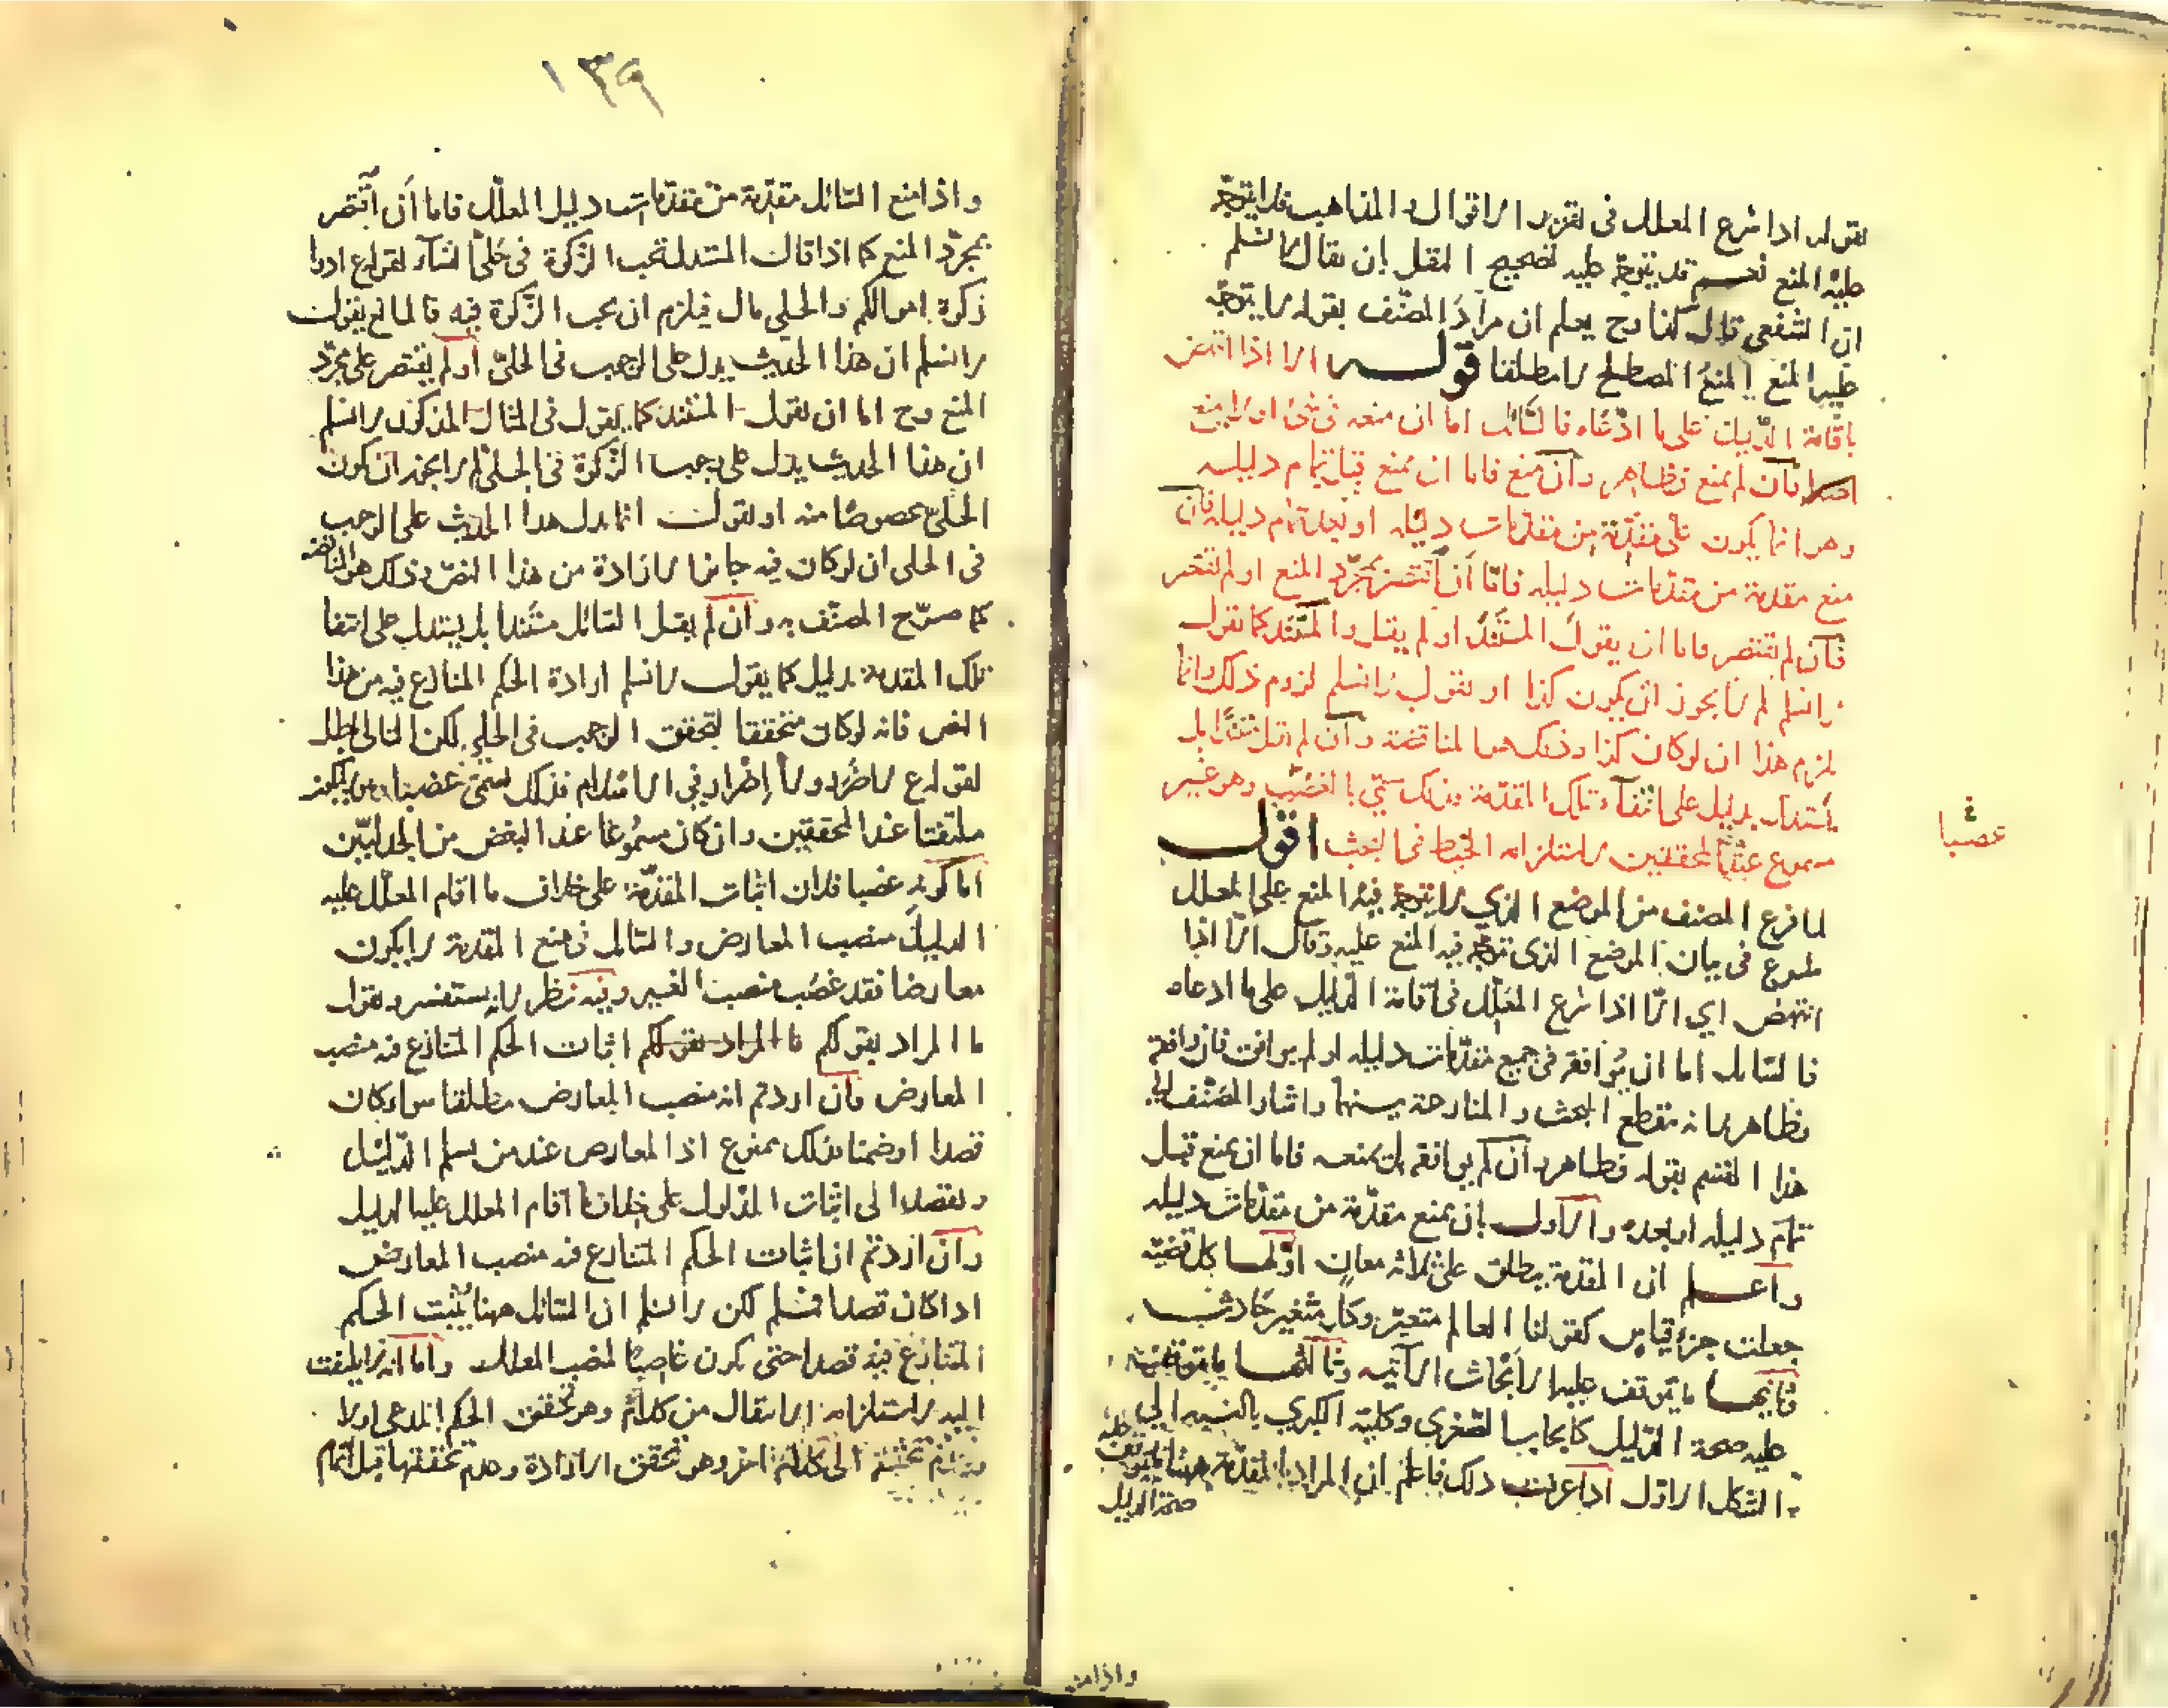 بقوله اذا شرع المعلل فى تقرير الاقوال والمذاهب فلا يتوجه
عليه المنع نعم قد يتوجه عليه تصحيح النقل بان يقال لا نسلم
ان الشفعى قال كذا وح يعلم ان مراد المصنف بقوله لا يتوجه
عليه المنع المنع المصطلح لا مطلقا قوله الا اذا انتهض
باقامة الدليل على ما ادعاه فالسائل اما ان منعه فى شئ او لم يمنع
اصلا فان لم يمنع فظاهر وان منع فاما ان يمنع قبل تمام دليله
وهو انما يكون على مقدمة من مقدمات دليله او بعد تمام دليله فان
منع مقدمة من مقدمات دليله فاما ان اقتصر بمجرد المنع او لم يقتصر
فان لم يقتصر فاما ان يقول المستند او لم يقل والمستند كما نقول
لا نسلم لم لا يجوز ان يكون كذا او نقول لا نسلم لزوم ذلك وانما
يلزم هذا ان لو كان كذا وذلك هو المناقضة وان لم يقل مستندا بل
استدل بدليل على انتفاء تلك المقدمة وذلك سمى بالغصب وهو غير
مسموع عند المحققين لاستلزامه الخبط فى البحث اقول
لما فرغ المصنف من الموضع الذي لا يتوجه فيه المنع على المعلل
شرع فى بيان الموضع الذى يتوجه فيه المنع عليه وقال الا اذا
انتهض اي الا اذا شرع المعلل فى اقامة الدليل على ما ادعاه
فالسائل اما ان يوافقه فى جميع مقدمات دليله او لم يوافق فان وافقه
فظاهر بانه ينقطع البحث والمنازعة بينهما واشار المصنف الى
هذا القسم بقوله فظاهر وان لم يوافقه بل يمنعه فاما ان يمنع قبل
تمام دليله او بعده والاول بان يمنع مقدمة من مقدمات دليله
واعلم ان المقدمة يطلق على ثلاثة معان اولها كل قضية
جعلت جزء قياس كقولنا العالم متغير وكل متغير حادث
وثانيها ما يتوقف عليه الابحاث الآتيه وثالثها ما يتوقف
عليه صحة الدليل كايجاب الصغرى وكلية الكبرى بالنسبة الى
الشكل الاول اذا عرفت ذلك فاعلم ان المراد بالمقدمة ههنا ما يتوقف عليه
صحة الدليل
غصبا
واذا منع
١٣٩
واذا منع السائل مقدمة من مقدمات دليل المعلل فاما ان اقتصر
بمجرد المنع كما اذا قال المستدل تجب الزكوة فى حلى النساء لقوله ع ادوا
زكوة اموالكم والحلي مال فيلزم ان يجب الزكوة فيه فالمانع يقول
لا نسلم ان هذا الحديث يدل على الوجوب فى الحلى او لم يقتصر على مجرد
المنع وح اما ان يقول المستند كما يقول فى المثال المذكور لا نسلم
ان هذا الحديث يدل على وجوب الزكوة فى الحلى لم لا يجوز ان يكون
الحلى مخصوصا منه او يقول انما يدل هذا الحديث على الوجوب
فى الحلى ان لو كان فيه جائز الارادة من هذا النص وذلك هو المناقضة
كما صرح المصنف به وان لم يقل السائل مستندا بل يستدل على انتفا
تلك المقدمة بدليل كما يقول لا نسلم ارادة الحكم المتنازع فيه من هذا
النص فانه لو كان متحققا لتحقق الوجوب فى الحلي لكن التالى باطل
لقوله ع لا ضرر ولا اضرار فى الاسلام فذلك يسمى غصبا ولا يكون
ملتفتا عند المحققين وان كان مسموعا عند البعض من الجدليين
اما كونه غصبا فلان اثبات المقدمة على خلاف ما اقام المعلل عليه
الدليل منصب المعارض والسائل فى منع المقدمة لا يكون
معارضا فقد غصب منصب الغير وفيه نظر لانه يستفسر ويقول
ما المراد بقولكم فالمراد بقولكم اثبات الحكم المتنازع فيه منصب
المعارض فان اردتم انه منصب المعارض مطلقا سواء كان
قصدا او ضمنا فذلك ممنوع اذ المعارض عند من يسلم الدليل
ويقصد الى اثبات المدلول على خلاف ما اقام المعلل عليه الدليل
وان اردتم ان اثبات الحكم المتنازع فيه منصب المعارض
اذا كان قصدا فمسلم لكن لا نسلم ان السائل ههنا يثبت الحكم
المتنازع فيه قصدا حتى يكون غاصبا لمنصب المعلل واما انه لا يلتفت
اليه لاستلزامه الانتقال من كلام وهو تحقق الحكم المدعى اولا
الى كلام اخر وهو تحقق الارادة وعدم تحققها قبل اتمام